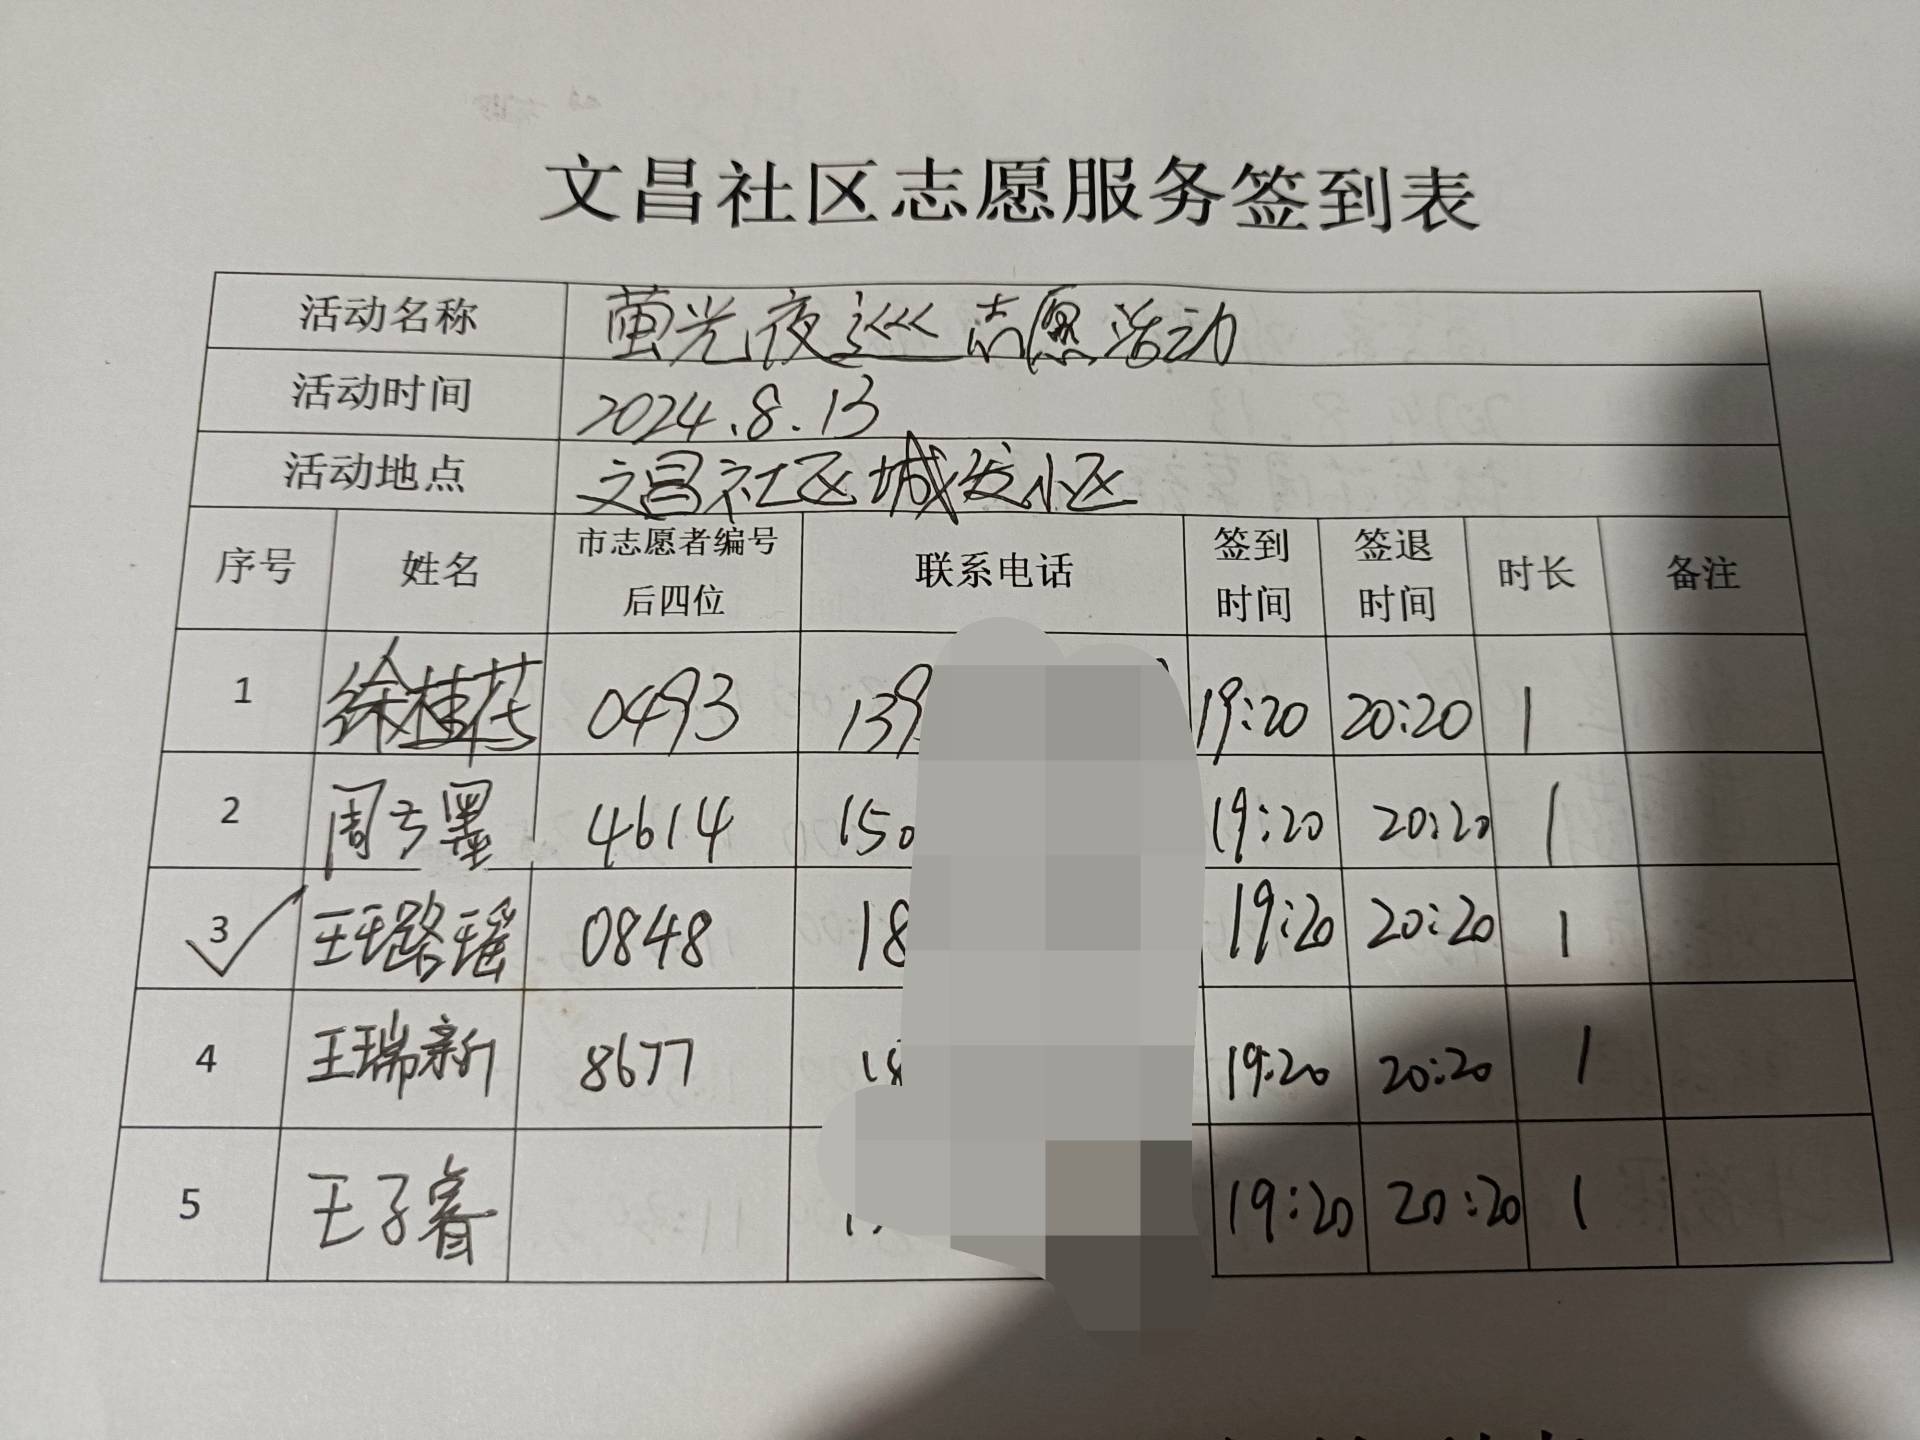 文昌社区志愿服务签到表
活动名称 萤光夜巡志愿活动
活动时间 2024.8.13
活动地点 文昌社区城发小区
序号 姓名 市志愿者编号后四位 联系电话 签到时间 签退时间 时长 备注
1 徐桂花 0493 139 19:20 20:20 1
2 周子墨 4614 150 19:20 20:20 1
3 王璐瑶 0848 18 19:20 20:20 1
4 王瑞新 8677 18 19:20 20:20 1
5 王子睿 19:20 20:20 1